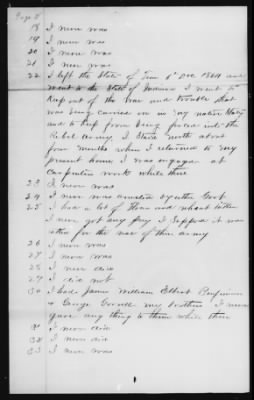 Page 2
18 I never was
19 I never was
20 I never was
21 I never was
22 I left the State of Tenn 1st Dec 1864 and
went to the State of Indiana I went to
Keep out of the War and trouble that
was being carried on in my native State
and to keep from being forced into the
Rebel Army. I staid north about
four months when I returned to my
present home I was engaged at
Carpenters work while there
23 I never was
24 I never was by either Govt
25 I had a lot of and wheat taken
I never got any pay I suppose it was
taken for the use of the army
26 I never was
27 I never was
28 I never did
29 I did not
30 I had James William Elbert Benjamin
& George my brothers I never
gave any thing to them while there
31 I never did
32 I never did
33 I never was